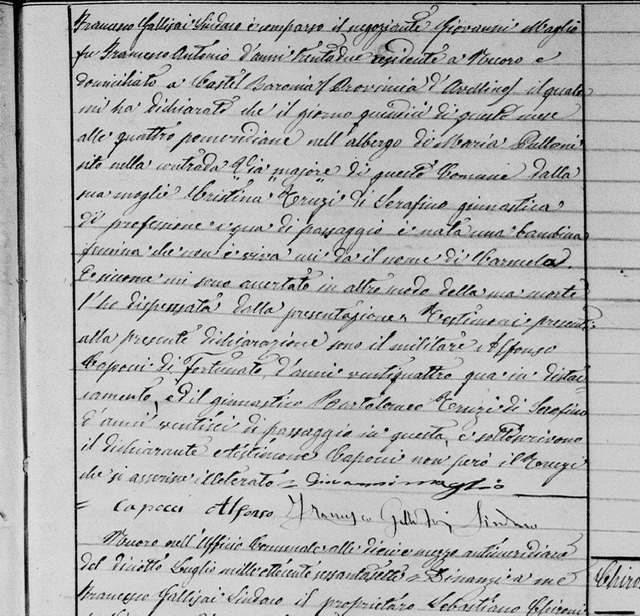 Francesco Gallisai Sindaco è comparso il negoziante Giovanni Maglio
fu Francesco Antonio d'anni trentadue residente a Nuoro e
domiciliato a Castel Baronia (Provincia d'Avellino) il quale
mi ha dichiarato che il giorno quindici di questo mese
alle quattro pomeridiane nell'albergo di Maria
sito nella contrada Via majore di questo Comune dalla
sua moglie Cristina Truzi di Serafino ginnastica
di professione e qua di passaggio è nata una bambina
femina che non è viva cui da il nome di Carmela.
E siccome mi sono accertato in altro modo della sua morte
l'ho dispensata dalla presentazione. Testimoni presenti
alla presente dichiarazione sono il militare Alfonso
Caponi di Fortunato d'anni ventiquattro qua in distac
camento, ed il ginnastico Bartolomeo Truzi di Serafino
d'anni ventisei di passaggio in questa, e sottoscrivono
il dichiarante e testimone Caponi non però il Truzi
che si asserisce illeterato = Giovanni Maglio
= Alfonso Francesco Gallisai Sindaco
Nuoro nell'Ufficio Comunale alle dieci e mezzo antimeridiane
del diciotto Luglio mille ottocento sessantasette = Dinanzi a me
Francesco Gallisai Sindaco il proprietario Sebastiano Chironi
Chiro